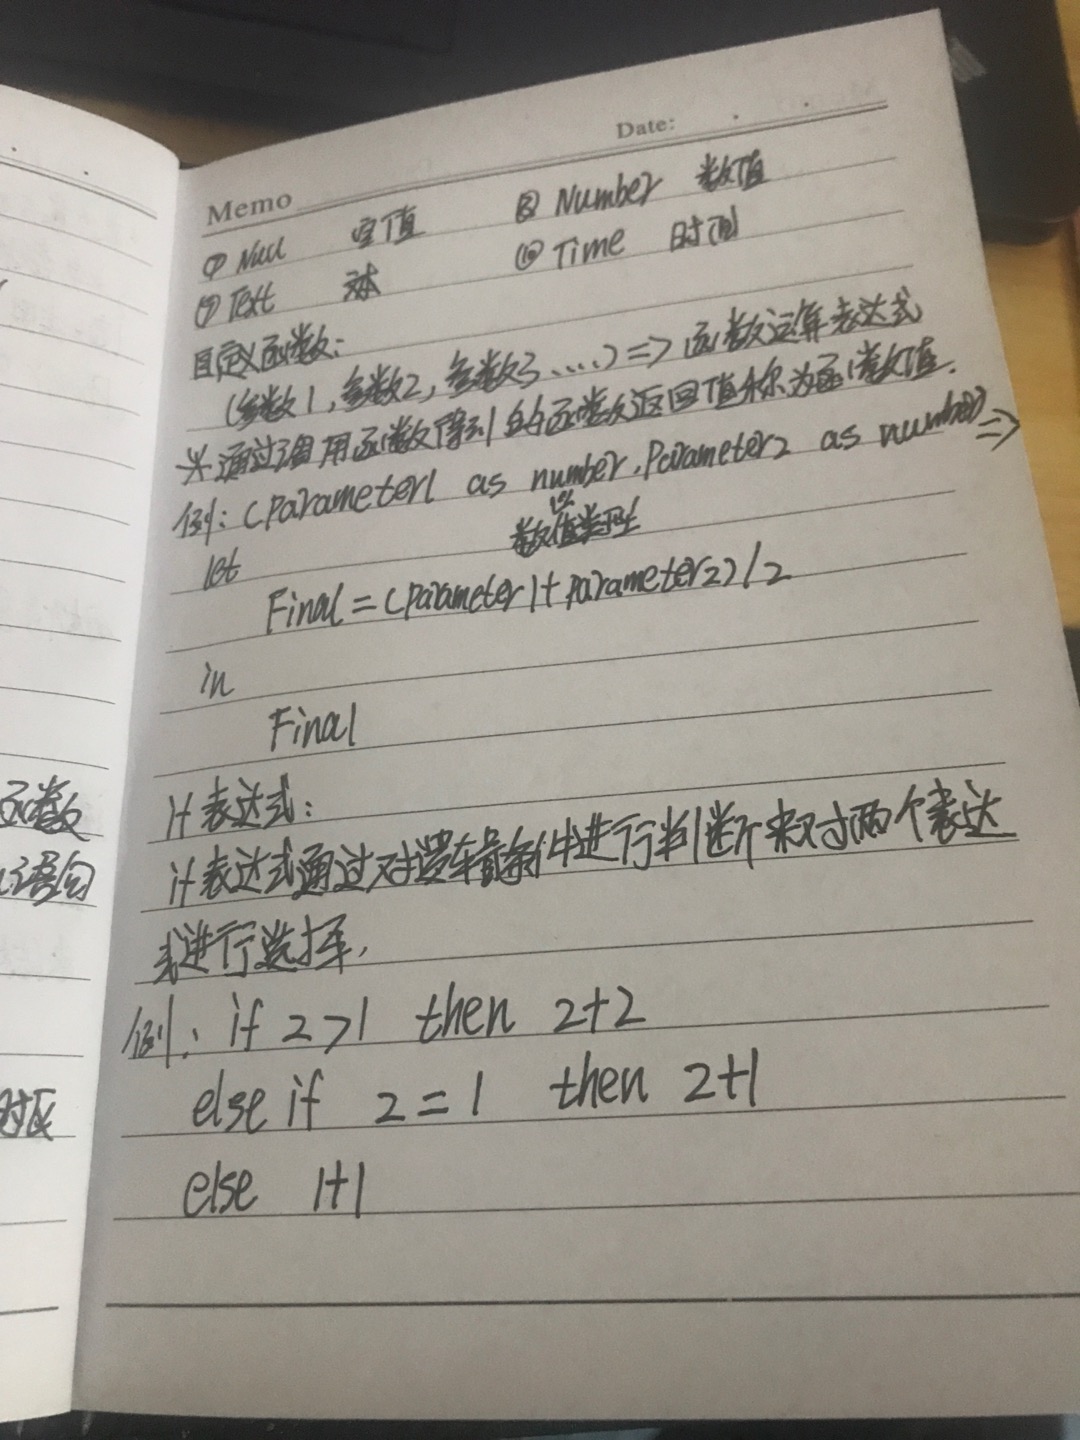 函数
语句
时反
Date:
Memo
⑦ Null 空值 ⑧ Number 数值
⑨ Text 文本 ⑩ Time 时间
自定义函数:
(参数1,参数2,参数3....)=>函数运算表达式
※通过调用函数得到的函数返回值称为函数值.
例:(Parameter1 as number,Parameter2 as number)=>
数值类型
let
Final=(Parameter1+Parameter2)/2
in
Final
if表达式:
if表达式通过对逻辑条件进行判断来对两个表达
式进行选择.
例: if 2>1 then 2+2
else if 2=1 then 2+1
else 1+1